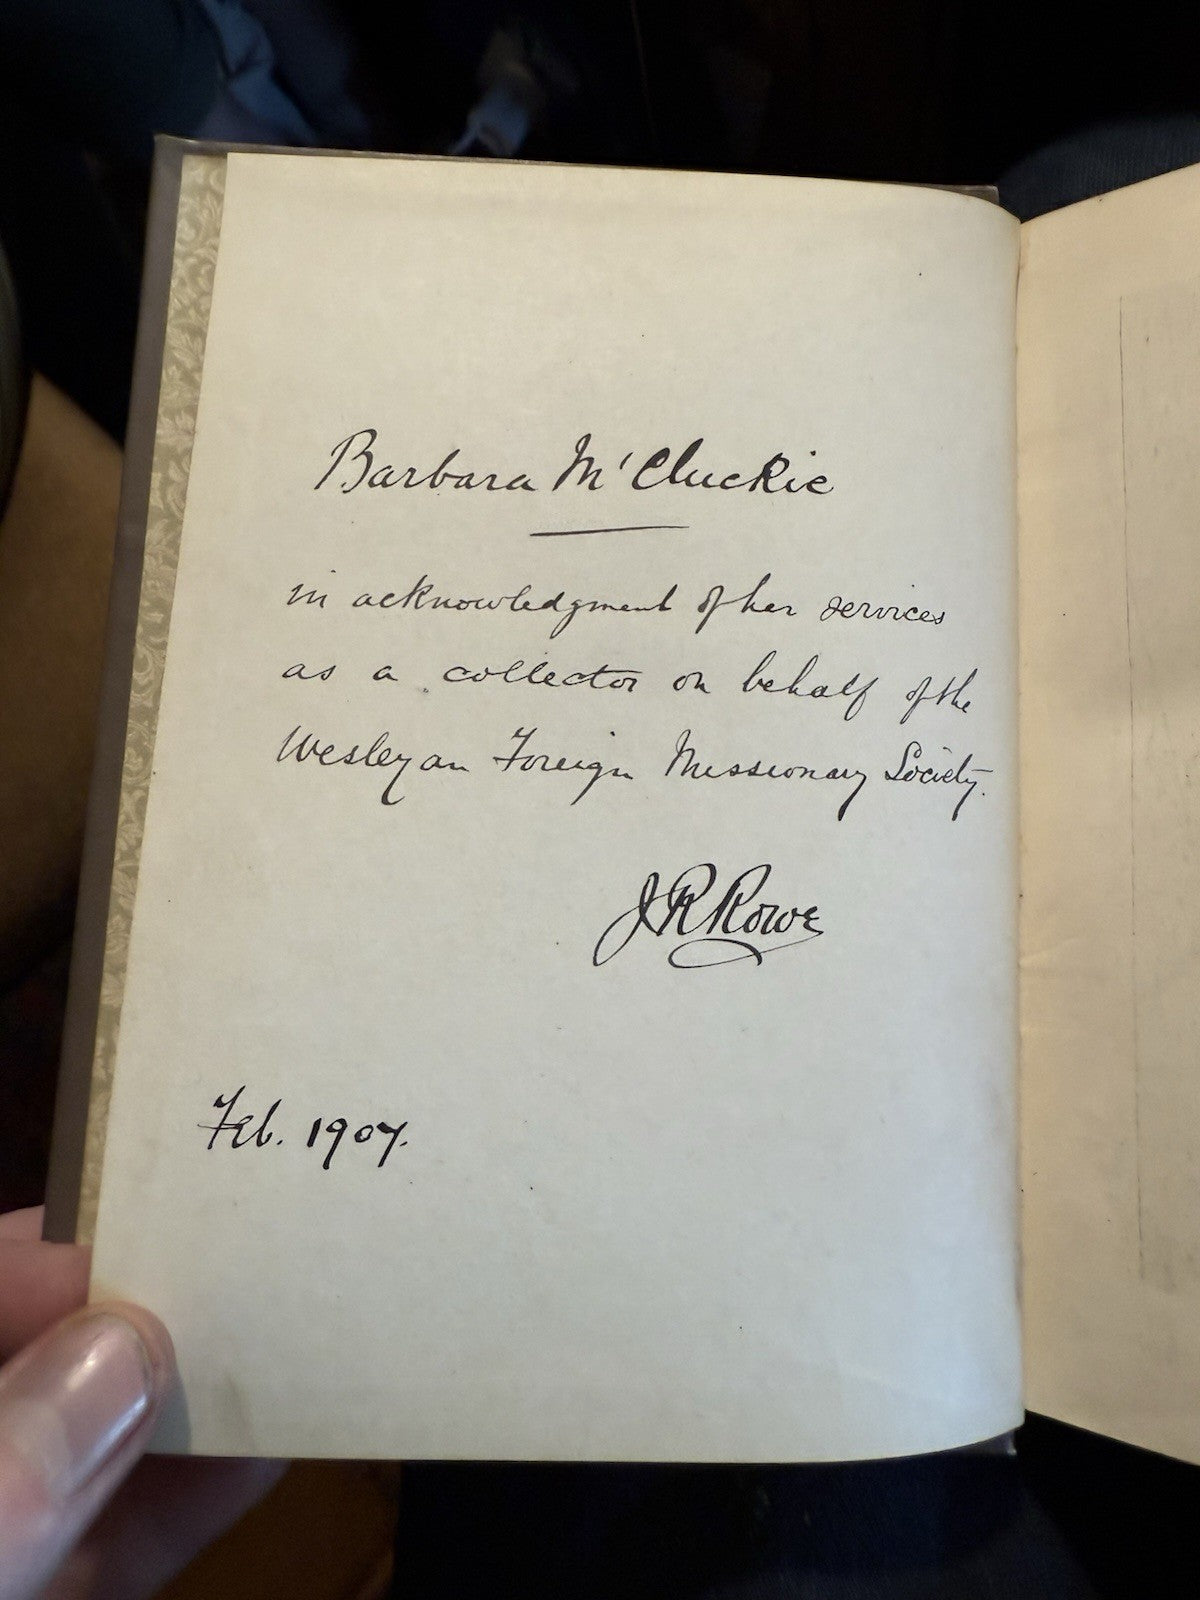 Barbara M'Cluckie
in acknowledgment of her services
as a collector on behalf of the
Wesleyan Foreign Missionary Society.
J R Rowe
Feb. 1907.